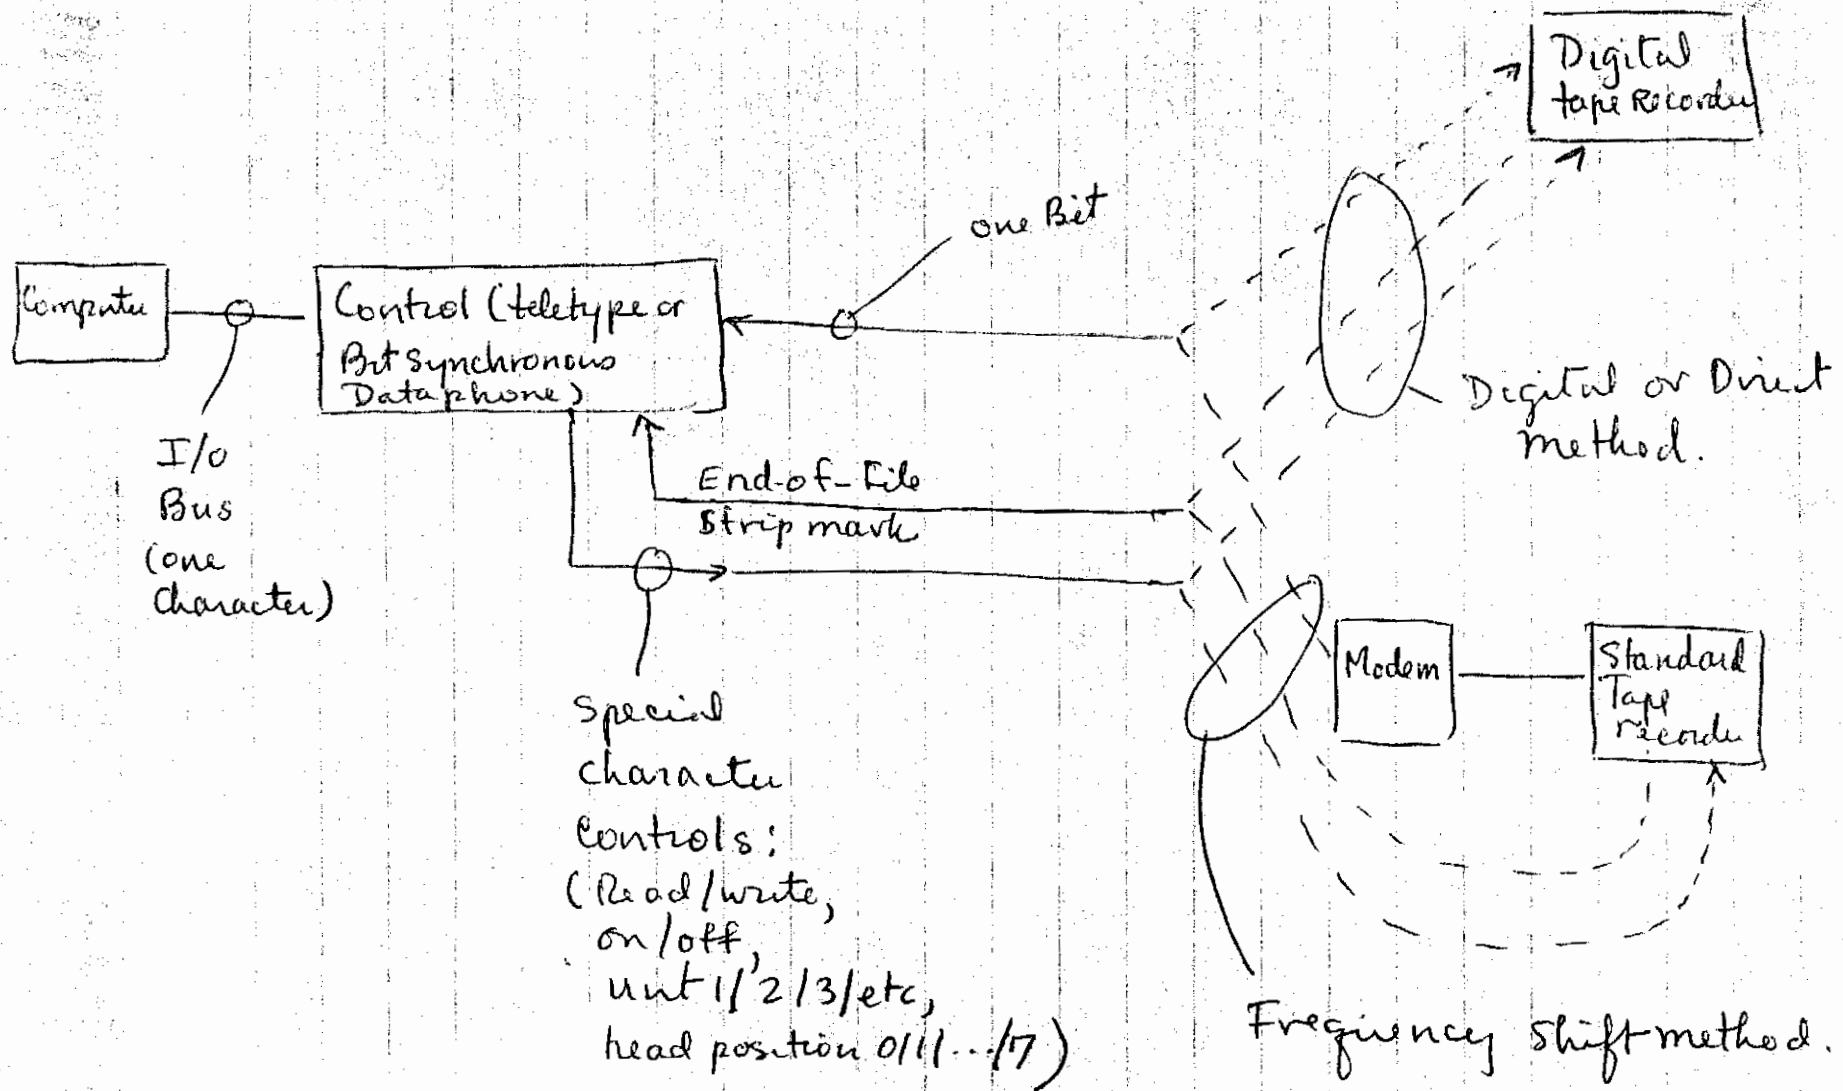 Digital
tape Recorder
one Bit
Computer
Control (teletype or
Bit Synchronous
Dataphone)
Digital or Direct
method.
I/O
Bus
(one
Character)
End-of-File
Strip mark
Modem
Standard
Tape
recorder
Special
character
Controls:
(Read/write,
on/off,
unit 1/2/3/etc,
head position 0/1/.../7)
Frequency Shift method.